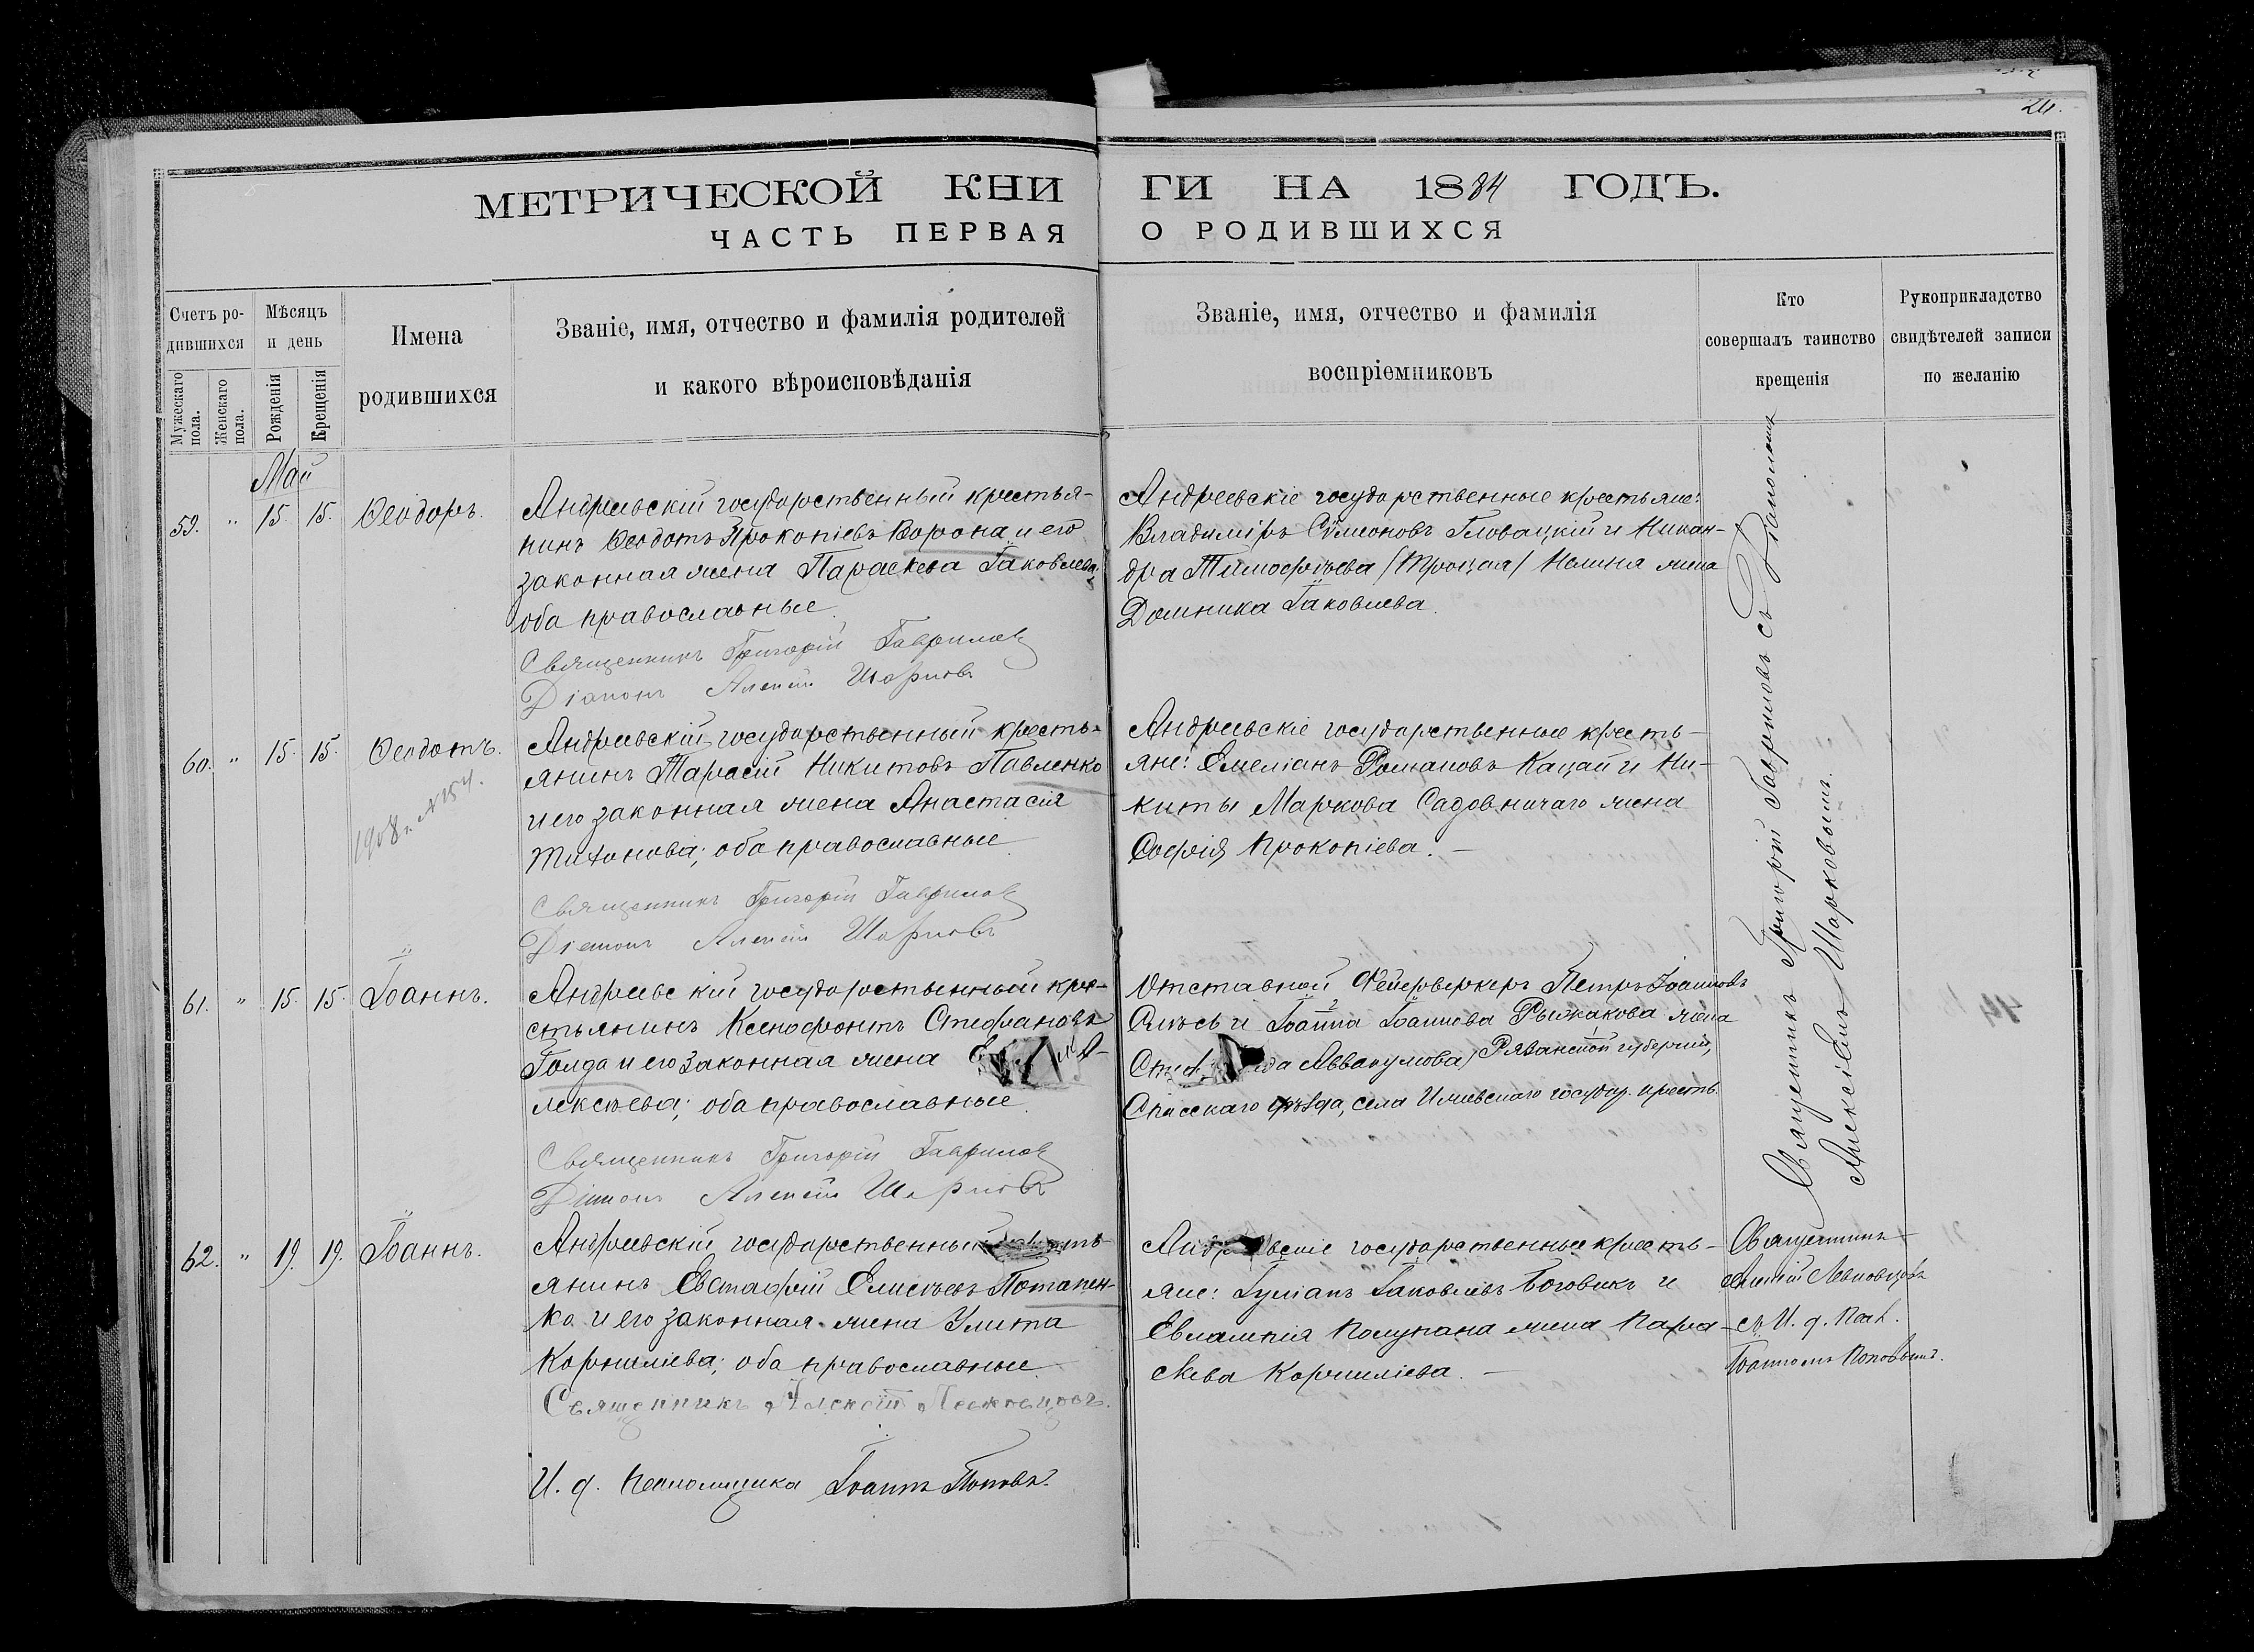 24.
МЕТРИЧЕСКОЙ КНИГИ НА 1884 ГОДЪ.
ЧАСТЬ ПЕРВАЯ О РОДИВШИХСЯ
Счетъ родившихся
Мужескаго пола.
Женскаго пола.
Мѣсяцъ и день
Рожденія
Крещенія
Имена
родившихся
Званіе, имя, отчество и фамилія родителей
и какого вѣроисповѣданія
Званіе, имя, отчество и фамилія
воспріемниковъ
Кто
совершалъ таинство
крещенія
Рукоприкладство
свидѣтелей записи
по желанію
Май
59. " 15. 15. Ѳеодоръ.
Андреевскій государственный крестья-
нинъ Ѳеодотъ Прокопіевъ Ворона и его
законная жена Параскева Іаковлева;
оба православные.
Священникъ Григорій Гавриловъ
Діаконъ Алексій Шарковъ
Андреевскіе государственные крестьяне:
Владиміръ Сѵмеоновъ Гловацкій и Никан-
дра Тимоѳеева /Троцая/ жена
Домника Іаковлева.
60. " 15. 15. Ѳеодотъ.
1908 г. №154.
Андреевскій государственный кресть-
янинъ Тарасій Никитовъ Павленко
и его законная жена Анастасія
Тихонова; оба православные.
Священникъ Григорій Гавриловъ
Діаконъ Алексій Шарковъ
Андреевскіе государственные кресть-
яне: Емеліанъ Романовъ Кацай и Ни-
киты Маркова Садовничаго жена
Софія Прокопіева. —
61. " 15. 15. Іоаннъ.
Андреевскій государственный кре-
стьянинъ Ксенофонтъ Стефановъ
Голда и его законная жена А-
лексѣева; оба православные.
Священникъ Григорій Гавриловъ
Діаконъ Алексій Шарковъ
Отставной Фейерверкеръ Петръ Іоанновъ
и Іоанна Іоаннова Рыжакова жена
Аввакумова / Рязанской губерніи,
Спасскаго уѣзда, села государ. кресть.
Священникъ Григорій Гавриловъ съ Діакономъ
Алексіемъ Шарковымъ.
62. " 19. 19. Іоаннъ.
Андреевскій государственный кресть-
янинъ Евстафій Елисеевъ Потапен-
ко и его законная жена Улита
Корниліева; оба православные.
Священникъ Алексій
И. д. Псаломщика Іоаннъ Поповъ.
Андреевскіе государственные кресть-
яне: Іуліанъ Іаковлевъ Боговикъ и
Евлампія Полупана жена Пара-
скева Корниліева. —
Священникъ
Алексій
съ И. д. Псал.
Іоанномъ Поповымъ.